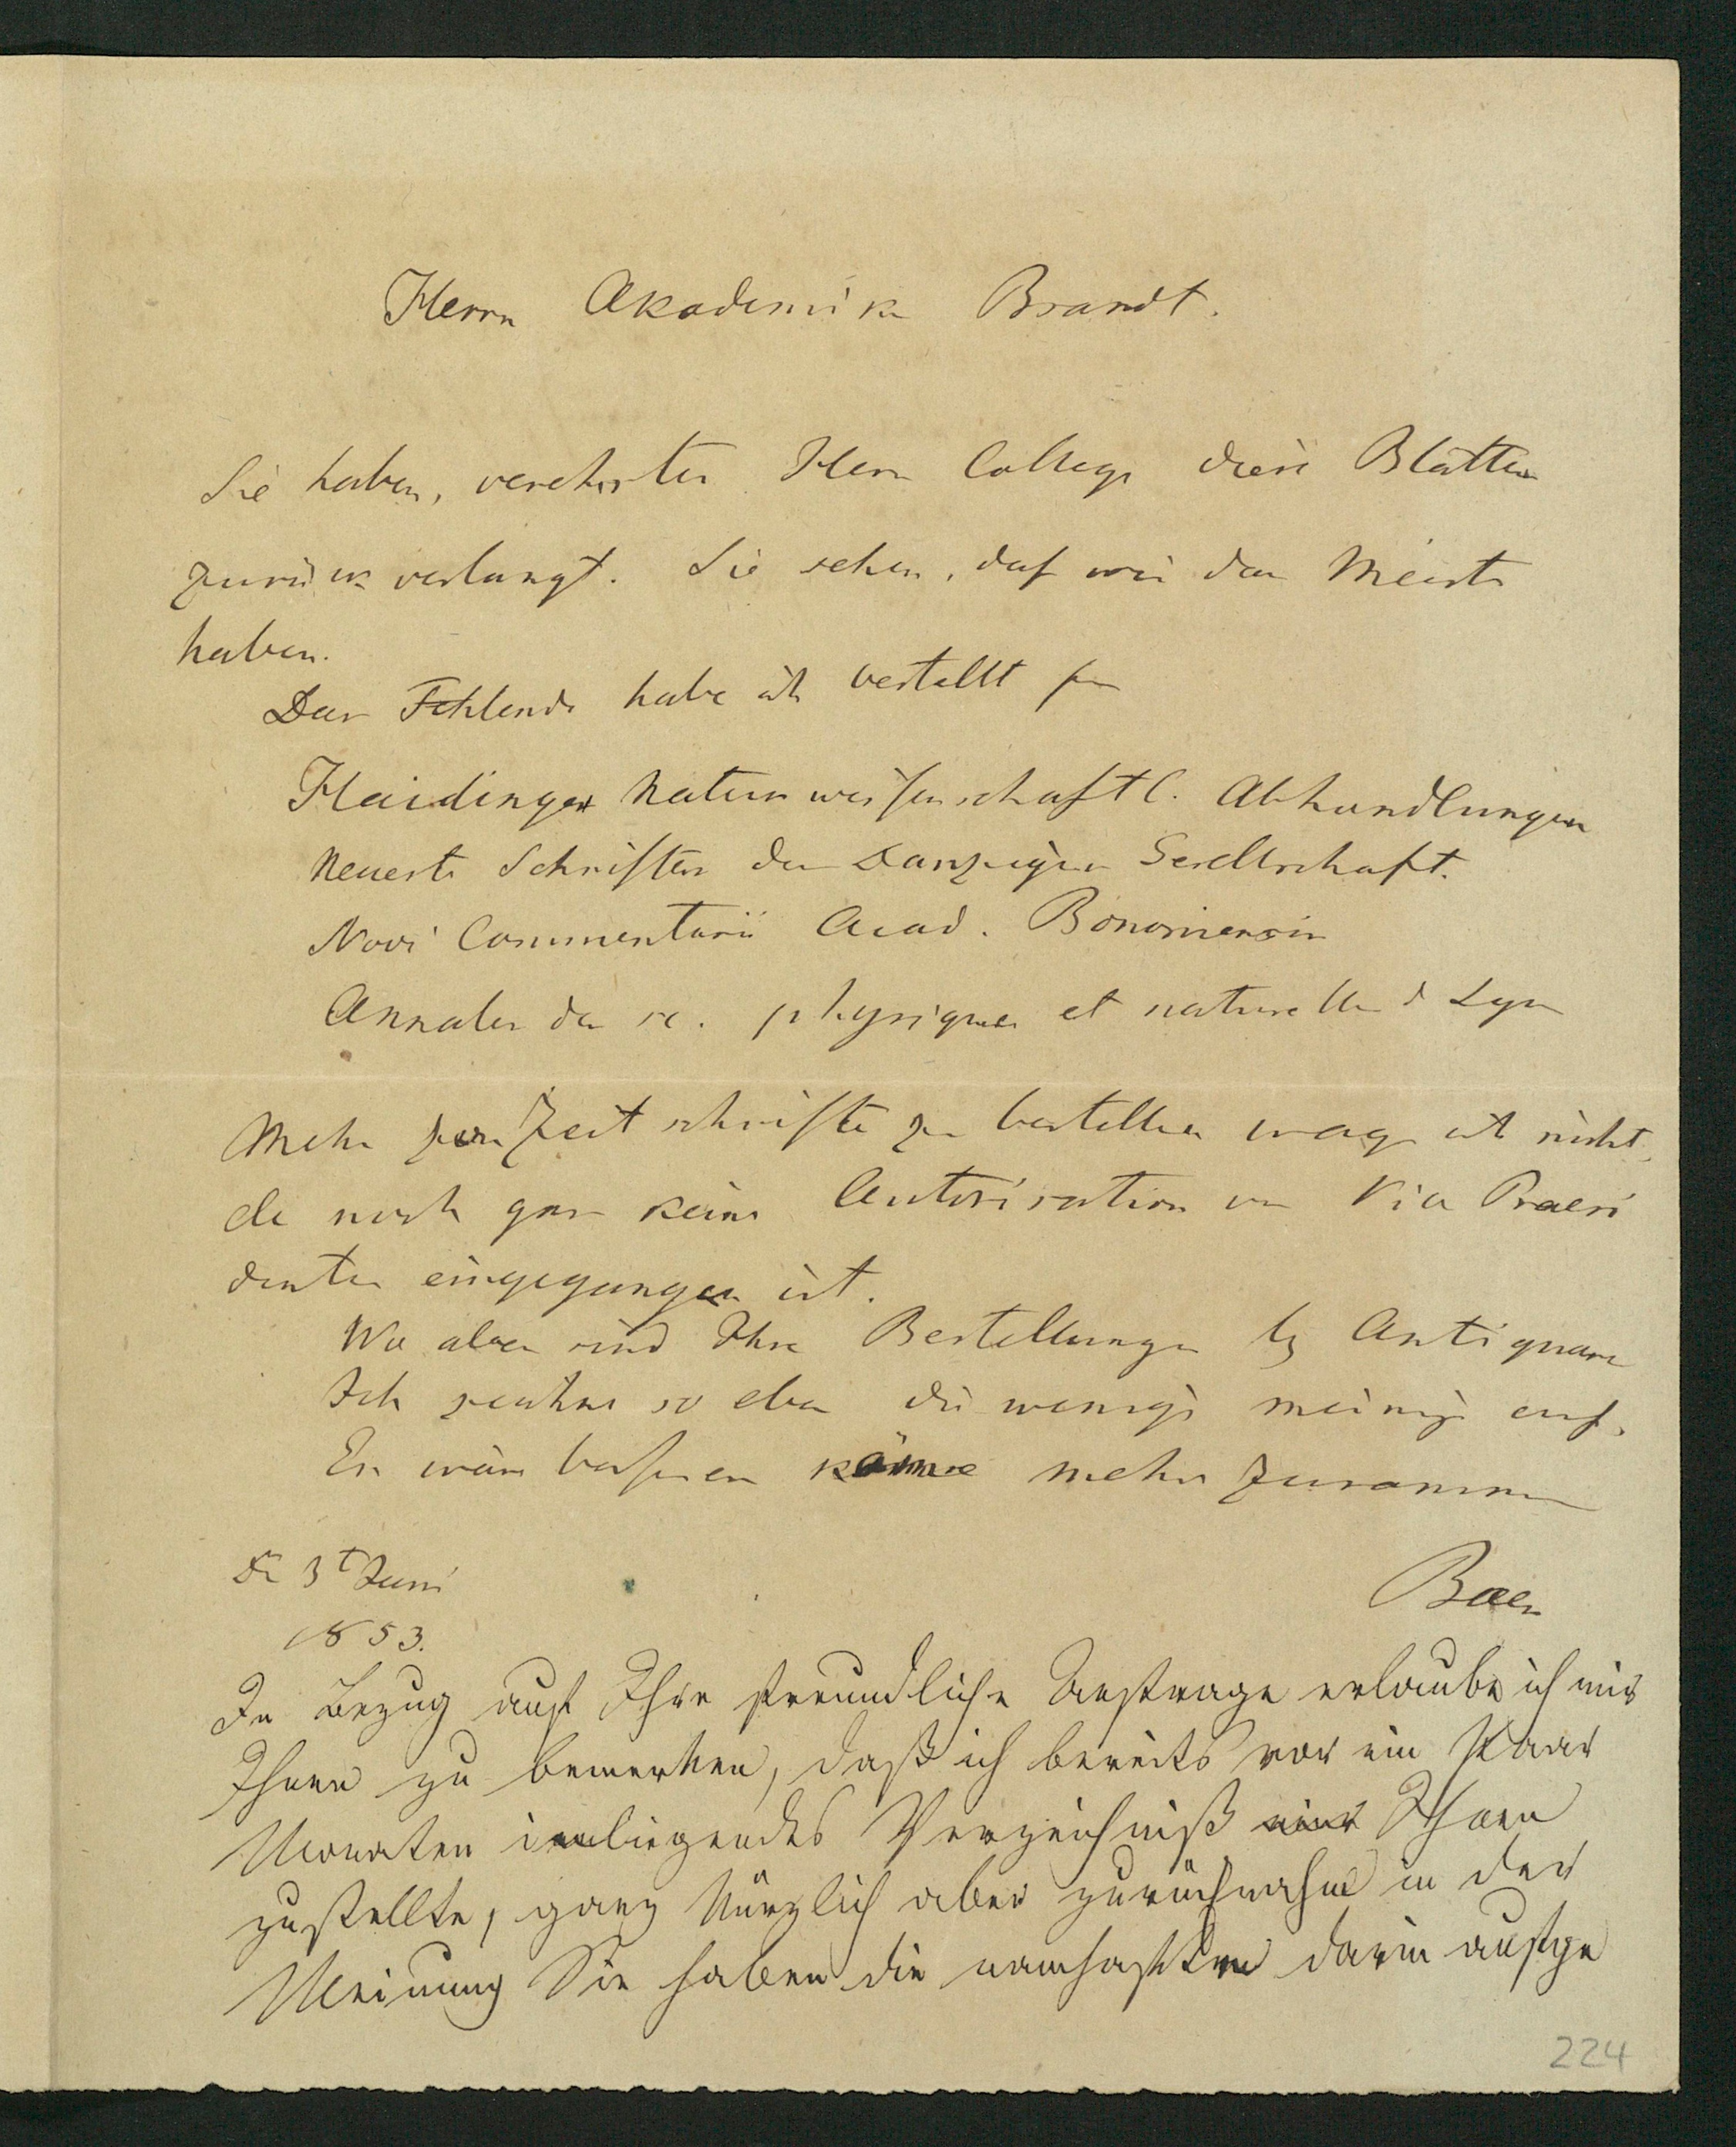 Herrn Akademiker Brandt.
Sie haben, verehrter Herr College diese Blätter
zurück verlangt. Sie sehen, daß wir das Meiste
haben.
Das Fehlende habe ich bestellt
Haidinger Naturwissenschaftl. Abhandlungen
Neueste Schriften der Danziger Gesellschaft.
Novi Commentarii Acad. Bononiensis
Annales des sc. physiques et naturelles d Lyon
Mehr Zeitschriften zu bestellen wage ich nicht,
da noch gar keine Autorisation vom Vice Praesi
denten eingegangen ist.
Wo aber sind Ihre Bestellungen bey Antiquaren
Ich zeichne so eben die wenigen meinige auf.
Es wäre besser es käme mehr zusammen
Baer
D. 3t Juni
1853.
In Bezug auf Ihre freundliche Anfrage erlaube ich mir
Ihnen zu bemerken, daß ich bereits vor ein Paar
Monaten inliegendes Verzeichniß Ihnen
zustellte, ganz kürzlich aber zurücknahm in der
Meinung Sie haben die namhaften darin aufge
224